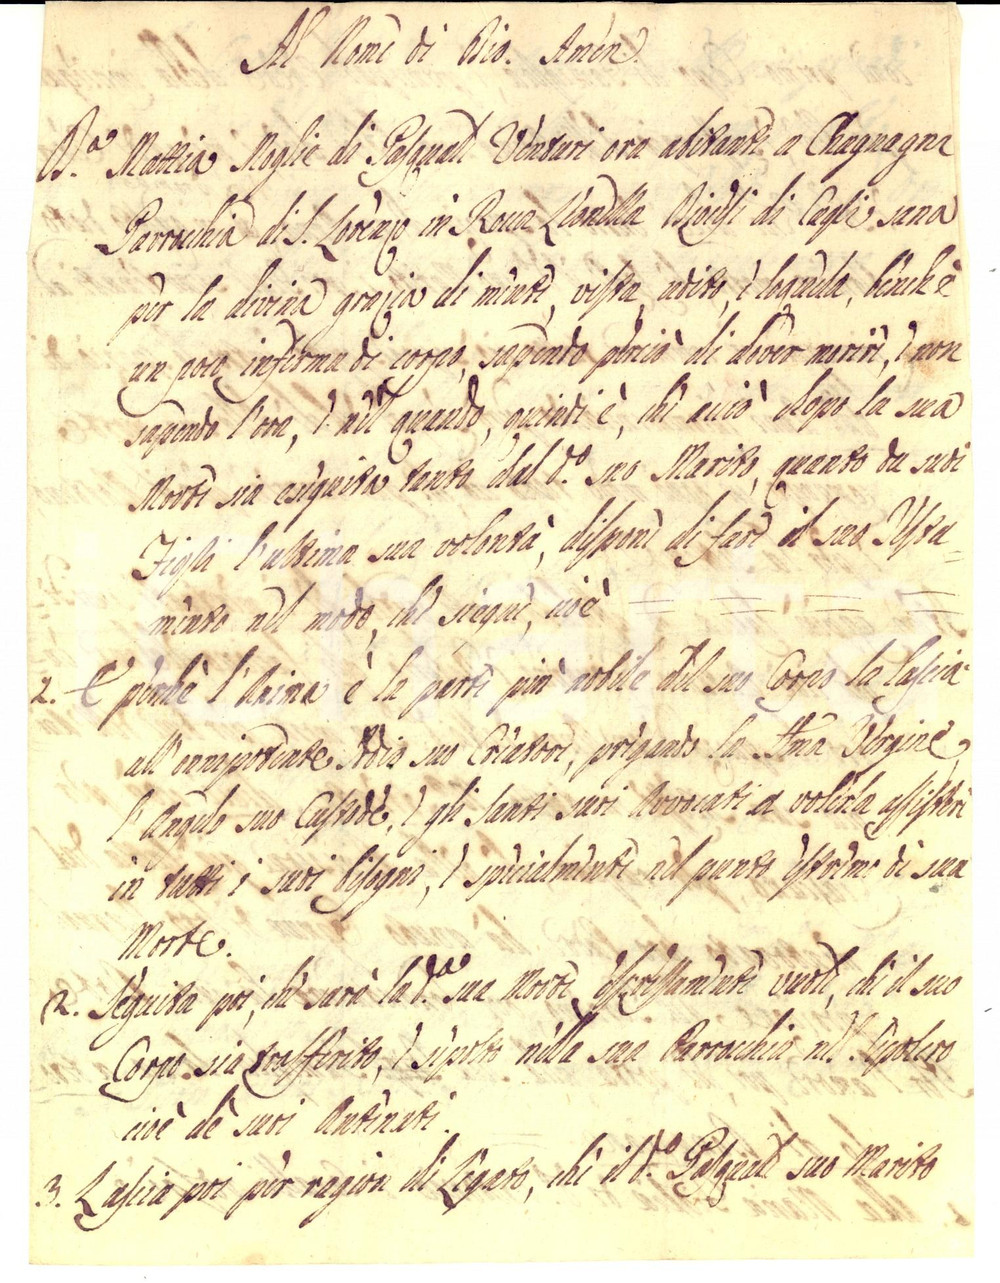 Al Nome di Dio. Amen.
D.a Mattia Moglie di Pasquale Venturi ora abitante a Chagnagne
Parrochia di S. Lorenzo in Roca Leonella Diocesi di Cagli sana
per la divina grazia di mente, vista, udito, e loquela, benchè
un poco inferma di corpo, sapendo perciò di dover morire, e non
sapendo l'ora, e nel quando, quindi è, che acciò dopo la sua
Morte sia eseguita tanto dal d.o suo Marito, quanto da suoi
Figli l'ultima sua volontà, dispone di fare il suo Testa=
mento nel modo, che siegue, cioè
1. E perchè l'Anima è la parte più nobile del suo Corpo la lascia
all'onnipotente Iddio suo Creatore, pregando la Sma Vergine,
l'Angelo suo Custode, e gli Santi suoi Avvocati a volerla assistere
in tutti i suoi bisogni, e specialmente nel punto estremo di sua
Morte.
2. Seguita poi, che sarà la d.a sua Morte, espressamente vuole, che il suo
Corpo sia trasferito, e sepolto nella sua Parrochia nel Sepolcro
cioè de suoi Antenati.
3. Lascia poi per ragion di Legato, che il d.o Pasquale suo Marito